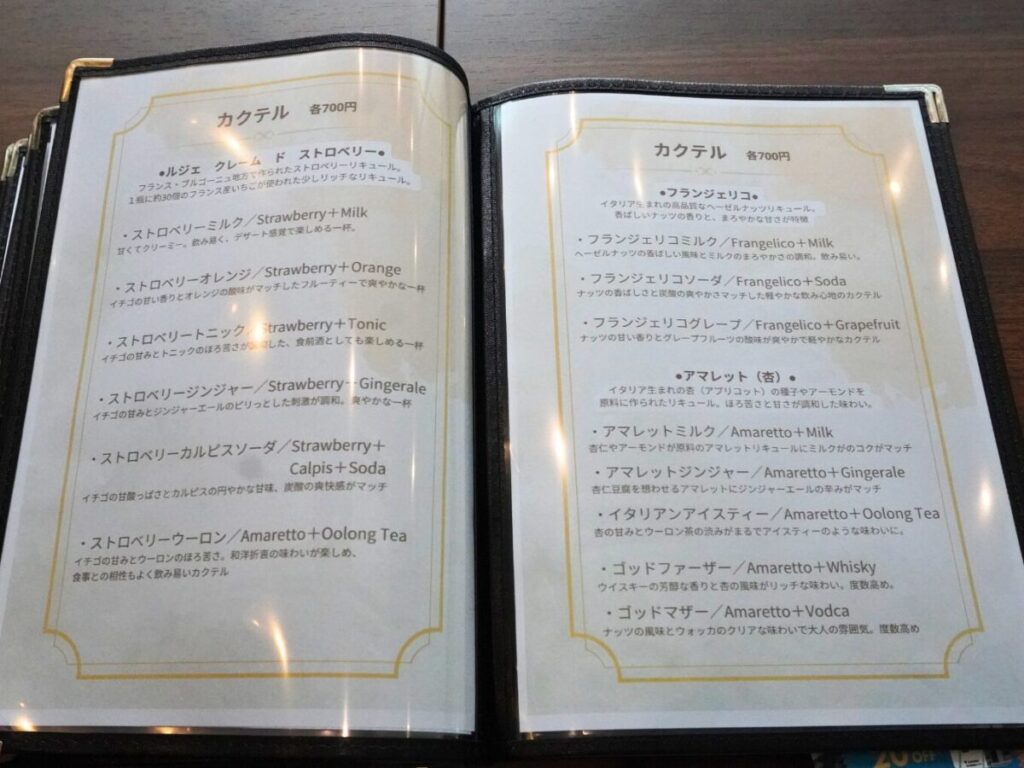 カクテル 各700円
●ルジェ クレーム ド ストロベリー●
フランス・ブルゴーニュ地方で作られたストロベリーリキュール。
1瓶に約30個のフランス産いちごが使われた少しリッチなリキュール。
・ストロベリーミルク／Strawberry＋Milk
甘くてクリーミー。飲み易く、デザート感覚で楽しめる一杯。
・ストロベリーオレンジ／Strawberry＋Orange
イチゴの甘い香りとオレンジの酸味がマッチしたフルーティーで爽やかな一杯
・ストロベリートニック／Strawberry＋Tonic
イチゴの甘みとトニックのほろ苦さが した、食前酒としても楽しめる一杯
・ストロベリージンジャー／Strawberry＋Gingerale
イチゴの甘みとジンジャーエールのピリっとした刺激が調和。爽やかな一杯
・ストロベリーカルピスソーダ／Strawberry＋
Calpis＋Soda
イチゴの甘酸っぱさとカルピスの円やかな甘味、炭酸の爽快感がマッチ
・ストロベリーウーロン／Amaretto＋Oolong Tea
イチゴの甘みとウーロンのほろ苦さ。和洋折衷の味わいが楽しめ、
食事との相性もよく飲み易いカクテル
カクテル 各700円
●フランジェリコ●
イタリア生まれの高品質なヘーゼルナッツリキュール。
香ばしいナッツの香りと、まろやかな甘さが特徴
・フランジェリコミルク／Frangelico＋Milk
ヘーゼルナッツの香ばしい風味とミルクのまろやかさの調和。飲み易い。
・フランジェリコソーダ／Frangelico＋Soda
ナッツの香ばしさと炭酸の爽やかさマッチした軽やかな飲み心地のカクテル
・フランジェリコグレープ／Frangelico＋Grapefruit
ナッツの甘い香りとグレープフルーツの酸味が爽やかで軽やかなカクテル
●アマレット（杏）●
イタリア生まれの杏（アプリコット）の種子やアーモンドを
原料に作られたリキュール。ほろ苦さと甘さが調和した味わい。
・アマレットミルク／Amaretto＋Milk
杏仁やアーモンドが原料のアマレットリキュールにミルクがのコクがマッチ
・アマレットジンジャー／Amaretto＋Gingerale
杏仁豆腐を想わせるアマレットにジンジャーエールの辛みがマッチ
・イタリアンアイスティー／Amaretto＋Oolong Tea
杏の甘みとウーロン茶の渋みがまるでアイスティーのような味わいに。
・ゴッドファーザー／Amaretto＋Whisky
ウイスキーの芳醇な香りと杏の風味がリッチな味わい。度数高め。
・ゴッドマザー／Amaretto＋Vodca
ナッツの風味とウォッカのクリアな味わいで大人の雰囲気。度数高め
20 OFF